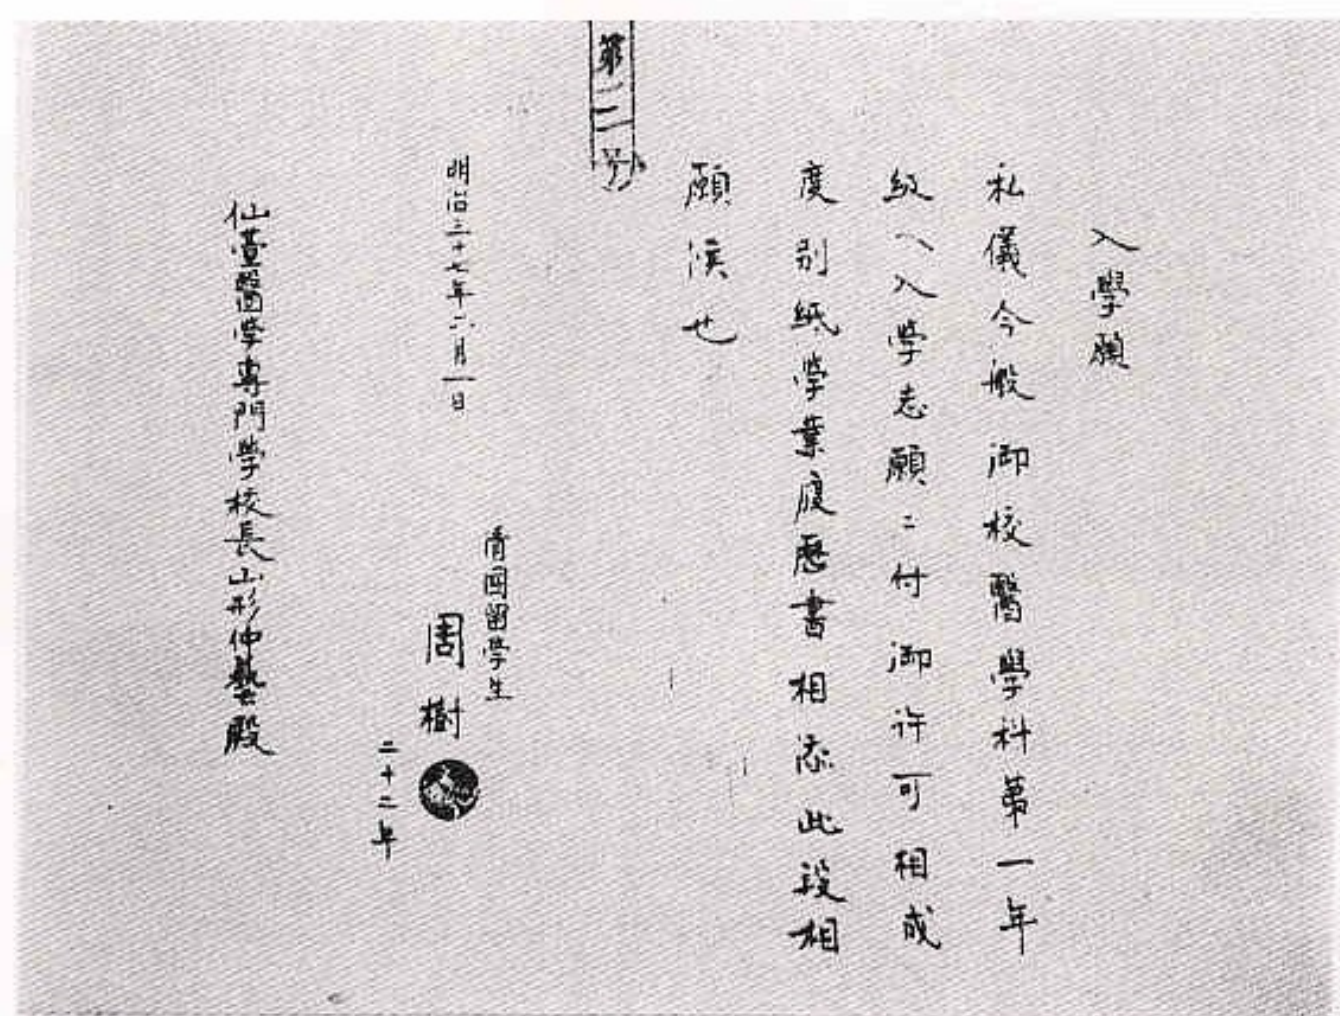 入學願
私儀今般御校醫學科第一年
級ヘ入学志願ニ付御許可相成
度別紙学業履歴書相添此段相
願候也
第二号
明治三十七年六月一日
清国留学生
周樹
二十二年
仙臺醫学専門学校長山形仲藝殿